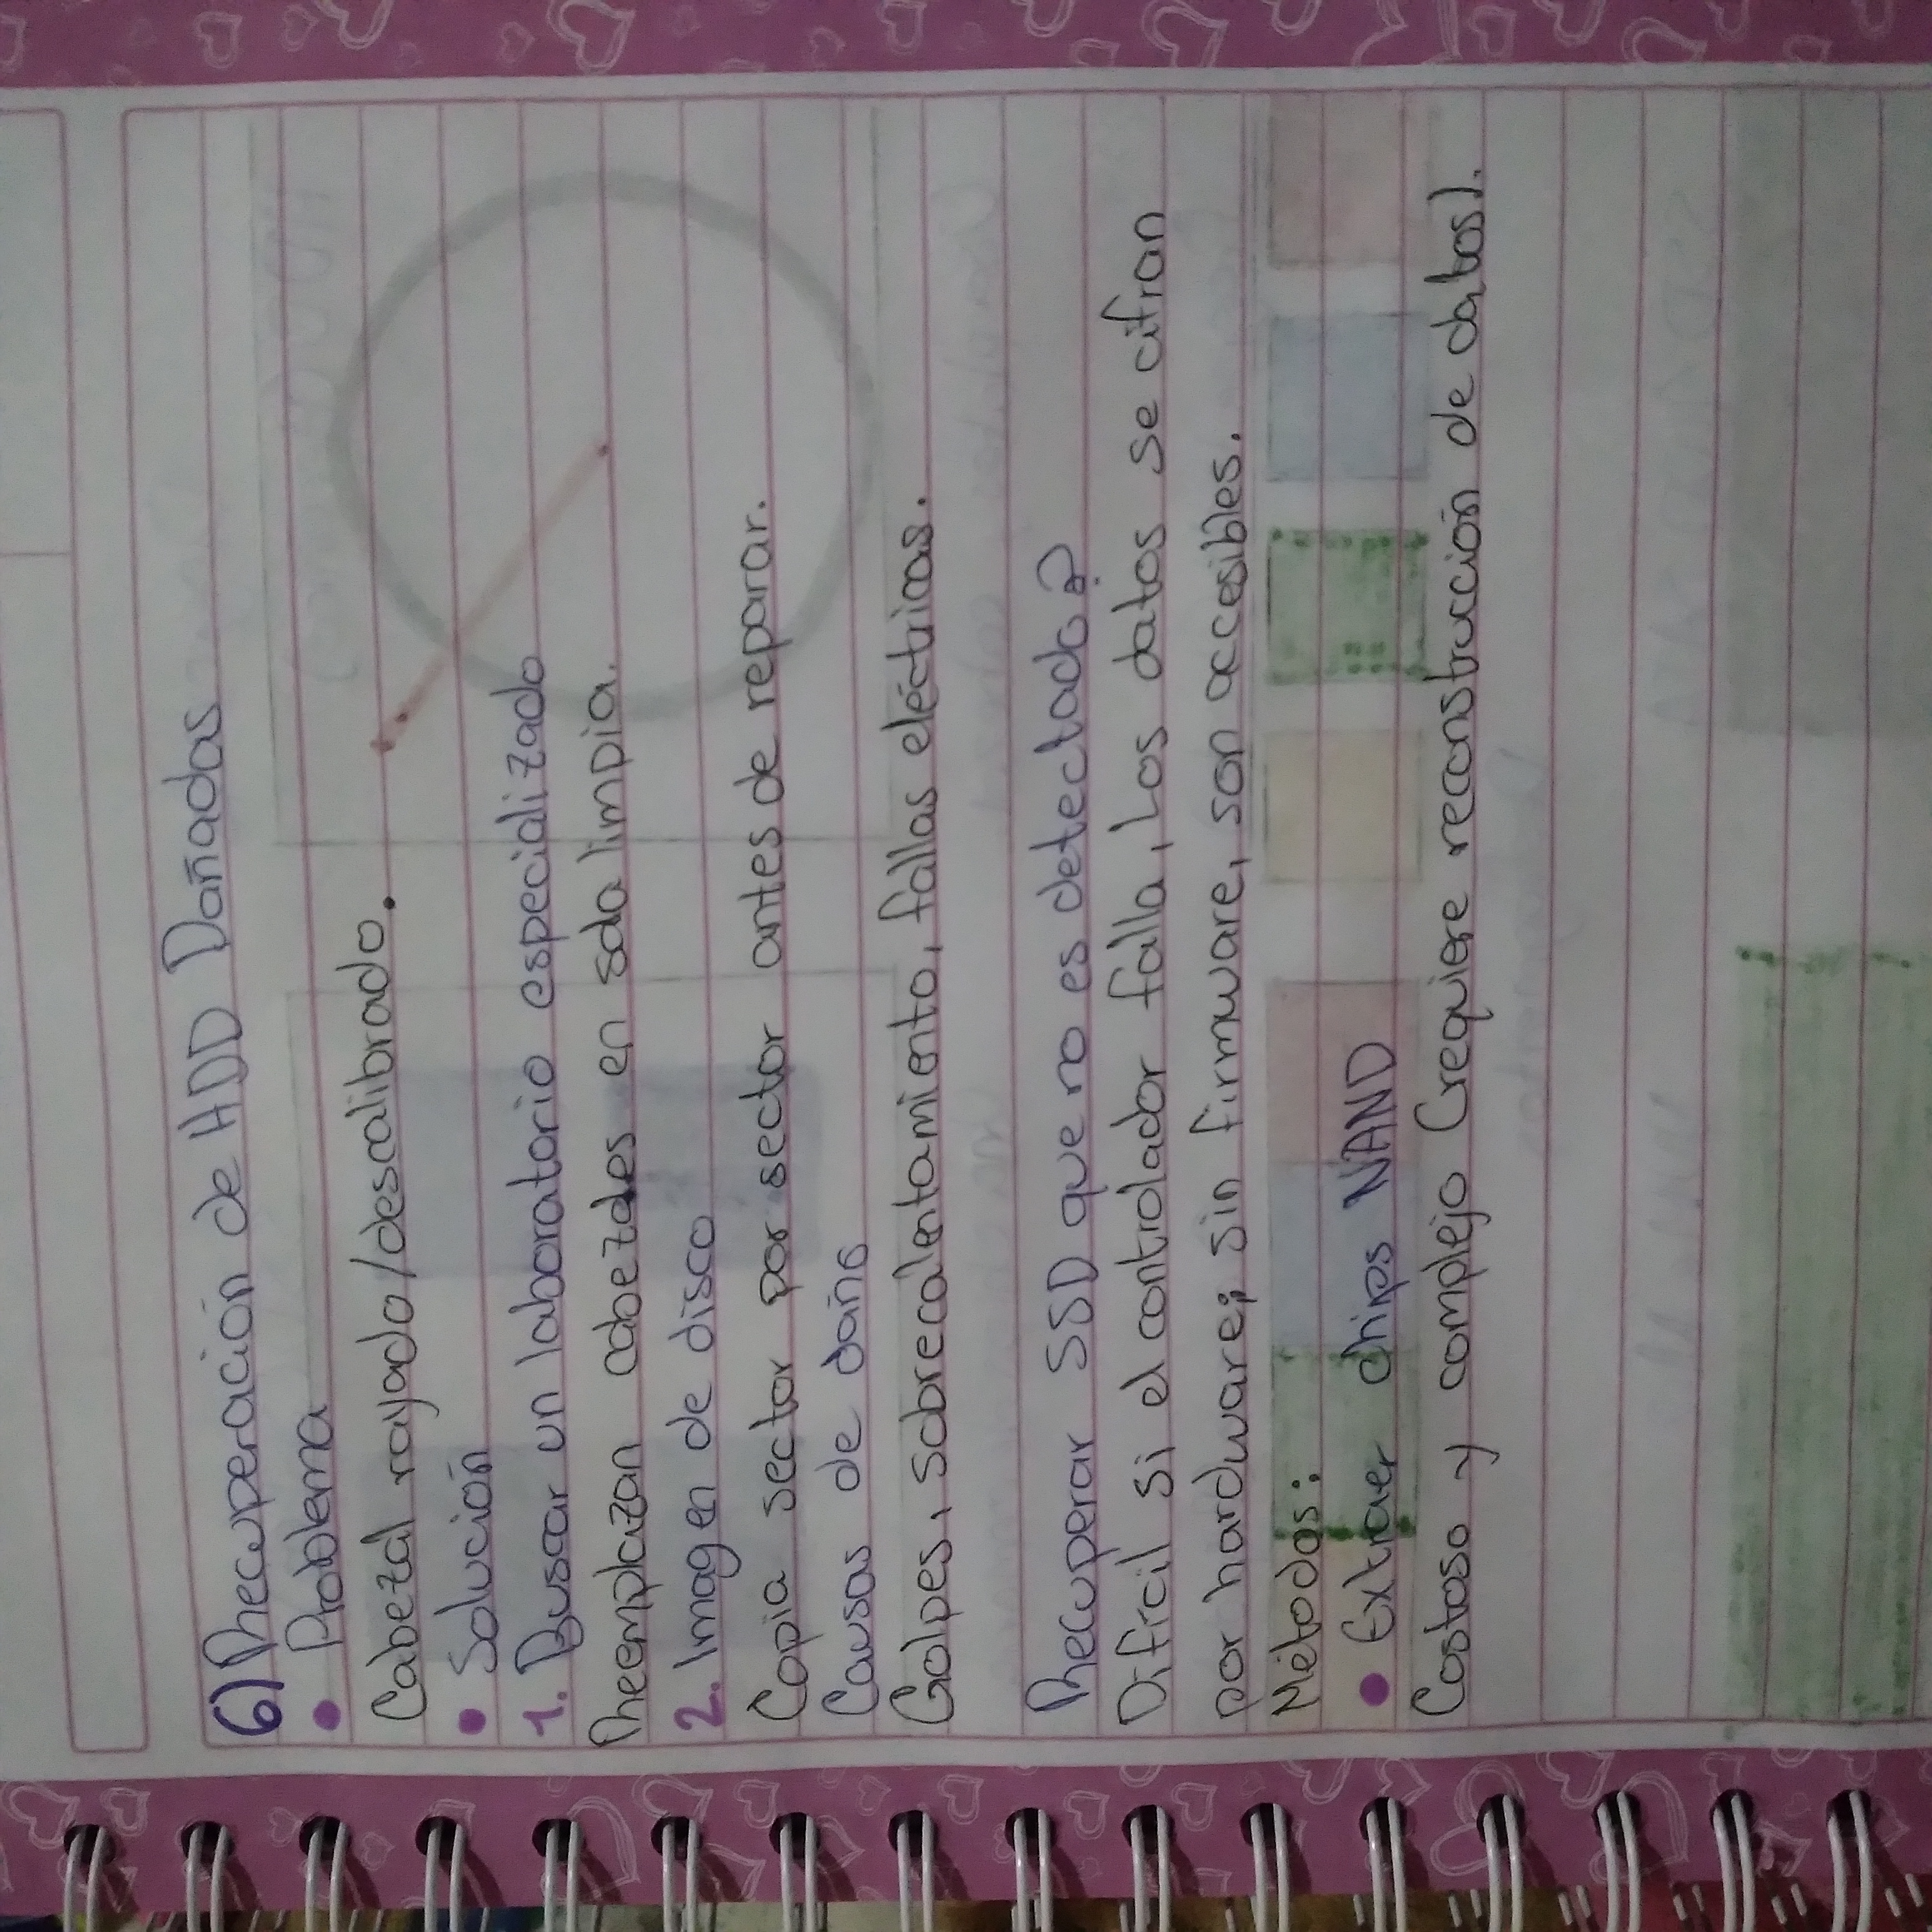 6) Recuperación de HDD Dañados
• Problema
Cabezal rayado/descalibrado.
• Solución
1. Buscar un laboratorio especializado
Reemplazan cabezales en sala limpia.
2. Imagen de disco
Copia sector por sector antes de reparar.
Causas de daño
Golpes, sobrecalentamiento, fallas eléctricas.
Recuperar SSD que no es detectado?
Dificil si el controlador falla, Los datos se cifran
por hardware; sin firmware, son accesibles.
Métodos:
• Extraer chips NAND
Costoso y complejo (requiere reconstrucción de datos).